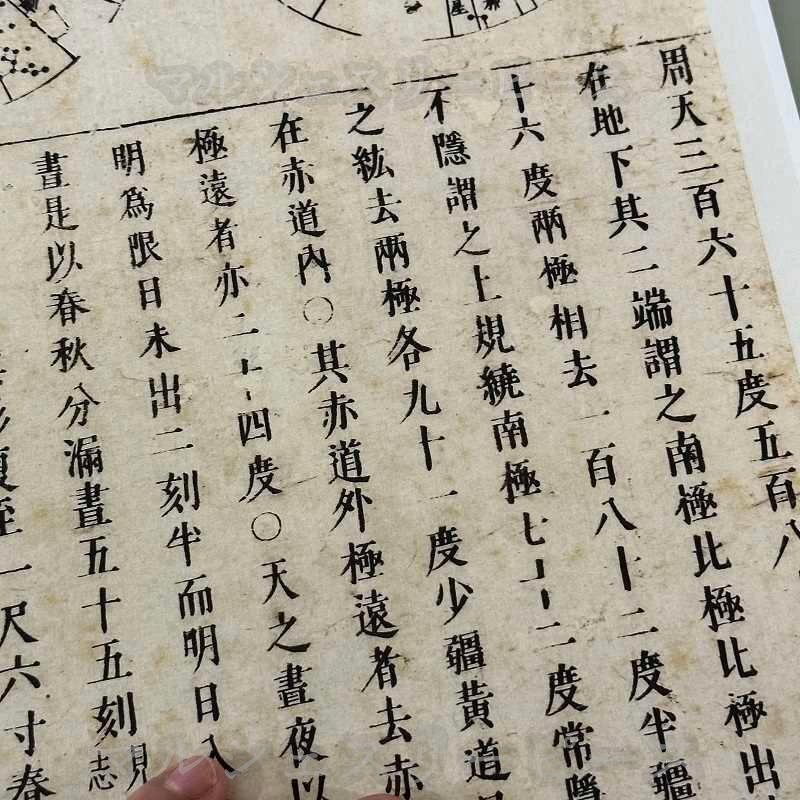 周天三百六十五度五百八
在地下其二端謂之南極比極比極出
十六度兩極相去一百八十二度半疆
不隱謂之上規繞南極七十二度常隱
之紘去兩極各九十一度少疆黃道
在赤道內〇其赤道外極遠者去赤
極遠者亦二十四度〇天之晝夜以
明爲限日未出二刻半而明日入
晝是以春秋分漏晝五十五刻見志
一尺六寸春
星